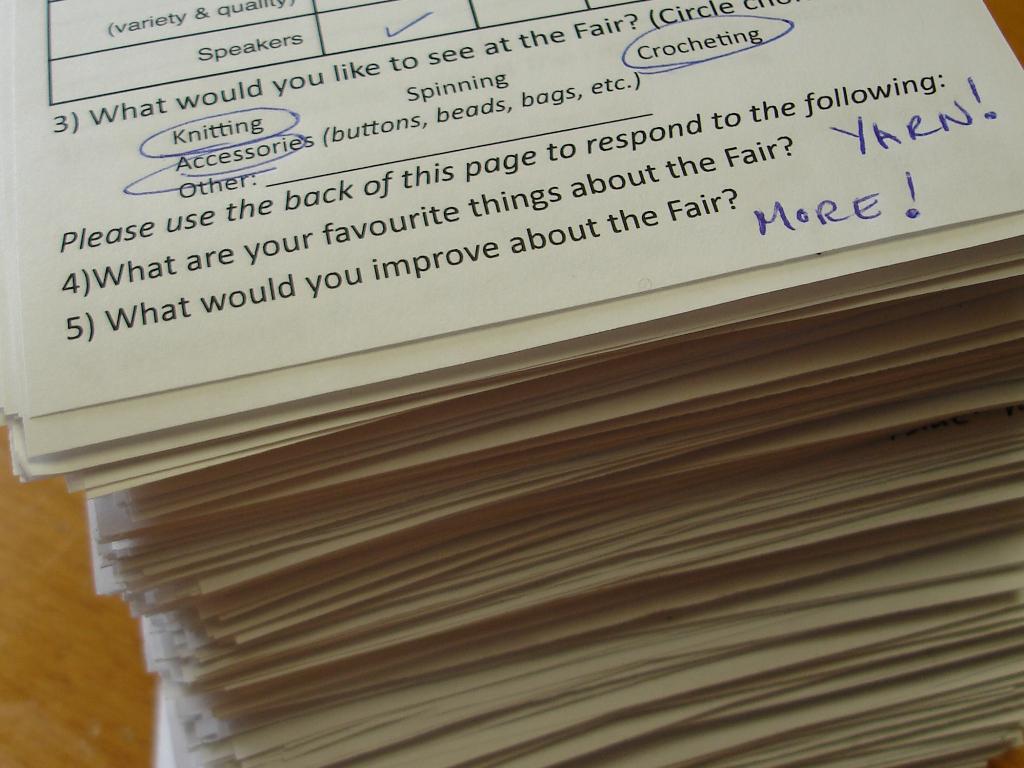 (variety & quality)
Speakers
3) What would you like to see at the Fair? (Circle
Knitting Spinning Crocheting
Accessories (buttons, beads, bags, etc.)
Other:
Please use the back of this page to respond to the following:
4)What are your favourite things about the Fair? YARN!
5) What would you improve about the Fair? MORE!